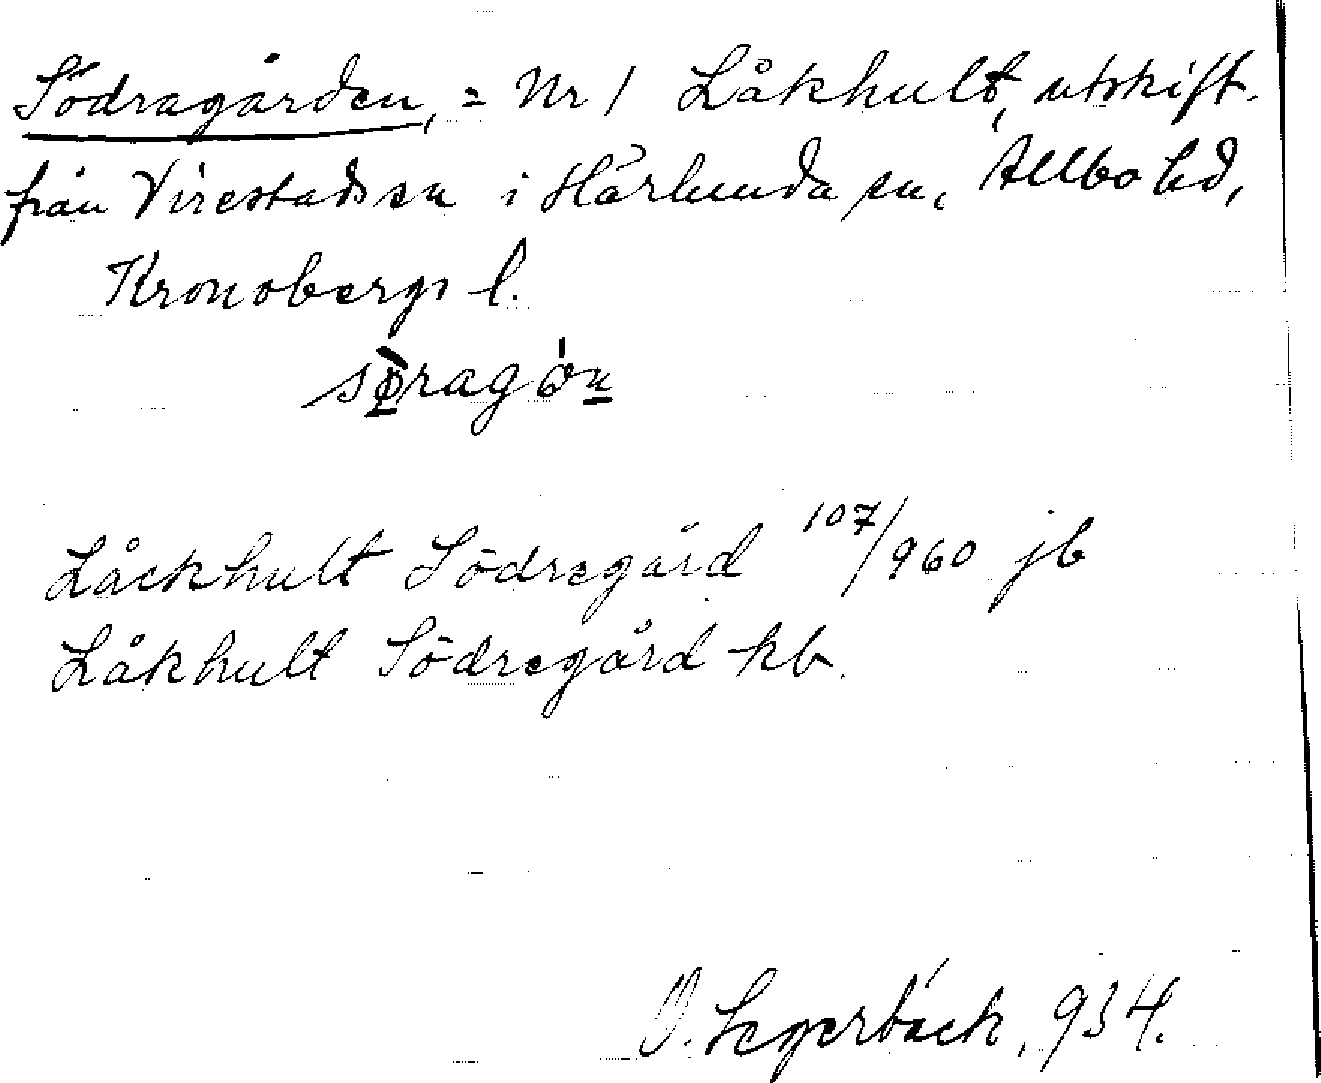 Södragården, = Nr 1 Låkhult, utskift.
från Virestads sn i Härlunda sn, Allbo hd,
Kronobergs l.
søragón
Låckhult Södregård 107/960 jb
Låkhult Södregård kb.
O. Segerbäck, 934.